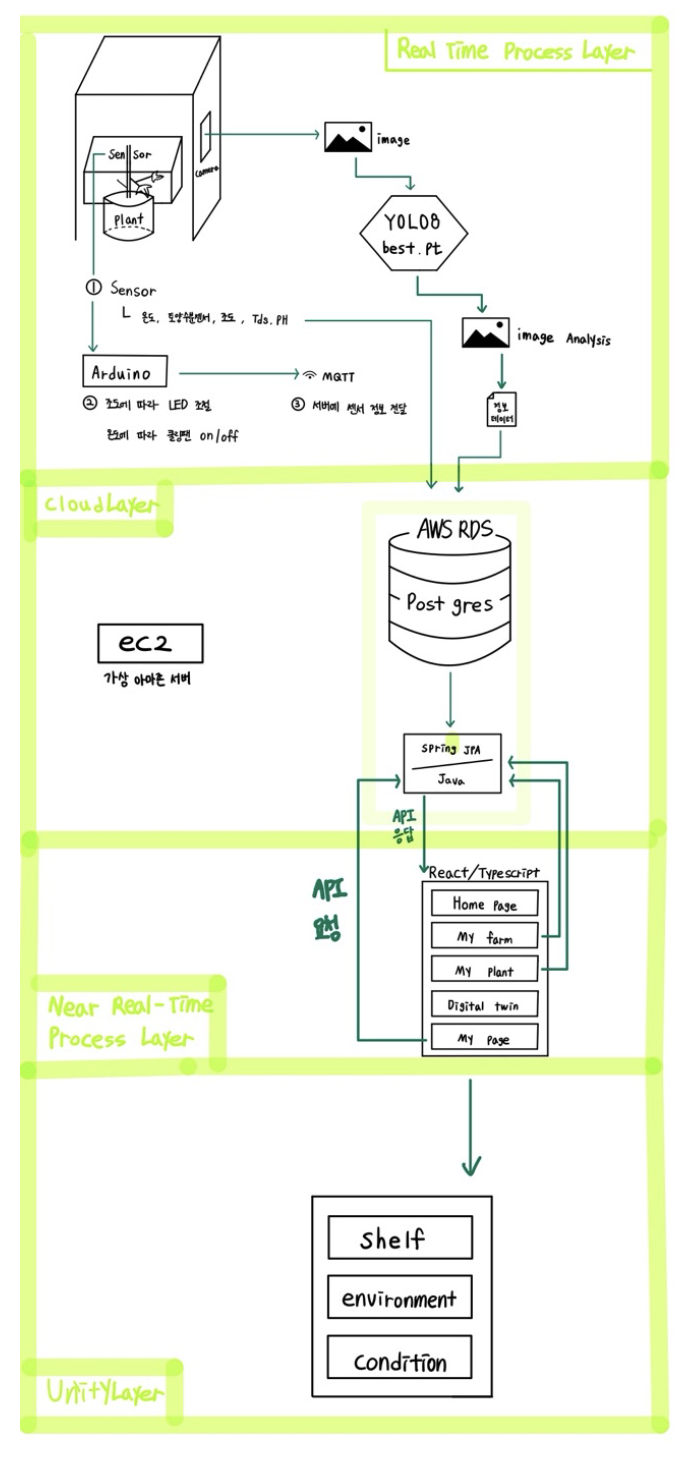 Real Time Process Layer
Sensor
camera
Plant
image
YOLO8
best.pt
① Sensor
└ 온도, 토양수분센서, 조도, Tds. PH
image Analysis
Arduino
MQTT
② 조도에 따라 LED 조절
온도에 따라 쿨링팬 on/off
③ 서버에 센서 정보 전달
정보
데이터
CloudLayer
AWS RDS
Postgres
ec2
가상 아마존 서버
Spring JPA
Java
API
응답
API
요청
React/Typescript
Home Page
My farm
My plant
Digital twin
My Page
Near Real-Time
Process Layer
Shelf
environment
Condition
UnityLayer